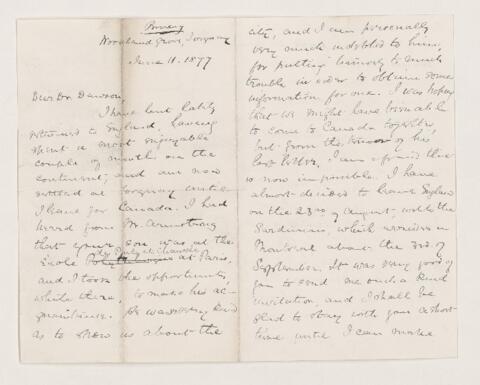 Woodland Grove, Torquay
June 11. 1877
Dear Dr. Dawson,
I have but lately
returned to England, having
spent a most enjoyable
couple of months on the
continent, and am now
settled at Torquay until
I leave for Canada. I had
heard from Mr. Armstrong
that your son was at the
Ecole at Paris,
and I took the opportunity,
while there, to make his ac-
quaintance. He was very kind
as to show us about the
city, and I am personally
very much indebted to him,
for putting himself to much
trouble in order to obtain some
information for me. I was hoping
that we might have been able
to come to Canada together,
but from the tenor of his
last letter, I am afraid this
is now impossible. I have
almost decided to leave England
on the 23rd of August, with the
Sardinian, which arrives in
Montreal about the 3rd of
September. It was very good of
you to send me such a kind
invitation, and I shall be
glad to stay with you a short
time until I can make